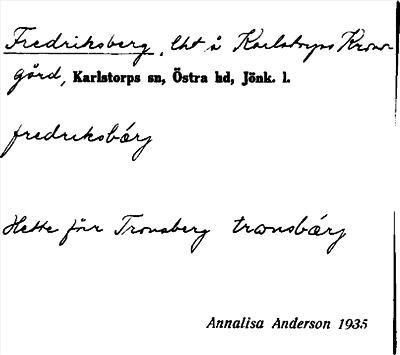 Fredriksberg, lht å Karlstorps Krono-
gård, Karlstorps sn, Östra hd, Jönk. l.
fredriksbærj
Hette förr Tronsberg tronsbærj
Annalisa Anderson 1935